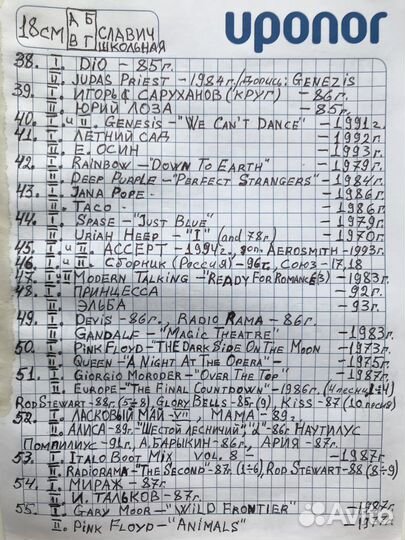 18см А Б В Г СЛАВИЧ ШКОЛЬНАЯ
uponor
38. I. DIO - 85г.
II. JUDAS PRIEST - 1984г./ДОПИС: GENEZIS
39. I. ИГОРЬ САРУХАНОВ (КРУГ) - 86г.
II. ЮРИЙ ЛОЗА - 85г.
40. I и II. GENESIS - "WE CAN'T DANCE" - 1991г.
41. I. ЛЕТНИЙ САД - 1992г.
II. Е. ОСИН - 1993г.
42. I. RAINBOW - "DOWN TO EARTH" - 1979г.
II. DEEP PURPLE - "PERFECT STRANGERS" - 1984г.
43. I. JANA POPE - - 1986г.
II. TACO - - 1986г.
44. I. SPASE - "JUST BLUE" - 1979г.
II. URIAH HEEP - "1" (and 78г.) - 1970г.
45. I и II. ACCEPT - 1994г., доп. AEROSMITH - 1993г.
46. I и II. СБОРНИК (РОССИЯ) - 96г., СОЮЗ - 17,18
47. I и II MODERN TALKING - "READY FOR ROMANCE" (3) - 1983г.
48. I. ПРИНЦЕССА - 92г.
II. ЭЛЬБА - 93г.
49. I. DEVIS - 86г., RADIO RAMA - 86г.
II. GANDALF - "MAGIC THEATRE" - 1983г.
50. I. PINK FLOYD - "THE DARK SIDE ON THE MOON - 1973г.
II. QUEEN - "A NIGHT AT THE OPERA" - 1975г.
51. I. GIORGIO MORODER - "OVER THE TOP" - 1987г.
II. EUROPE - "THE FINAL COUNTDOWN" - 1986г. (4 песни, 1÷4)
ROD STEWART - 88г. (5÷8), GLORY BELLS - 85г. (9), KISS - 87 (10 песня)
52. I. ЛАСКОВЫЙ МАЙ - VII, МАМА - 89г.
II. АЛИСА - 89г. "ШЕСТОЙ ЛЕСНИЧИЙ", "2" - 86г НАУТИЛУС
ПОМПИЛИУС - 91г., А.БАРЫКИН - 86г., АРИЯ - 87г.
53. I. ITALO BOOT MIX VOL. 8 - 1987г
II. RADIORAMA - "THE SECOND" - 87г. (1÷6), ROD STEWART - 88 (8÷9)
54. I. МИРАЖ - 87г
II. И. ТАЛЬКОВ - 87г.
55. I. GARY MOOR - "WILD FRONTIER" - 1987г.
II. PINK FLOYD - "ANIMALS" - 1977г.
Avito